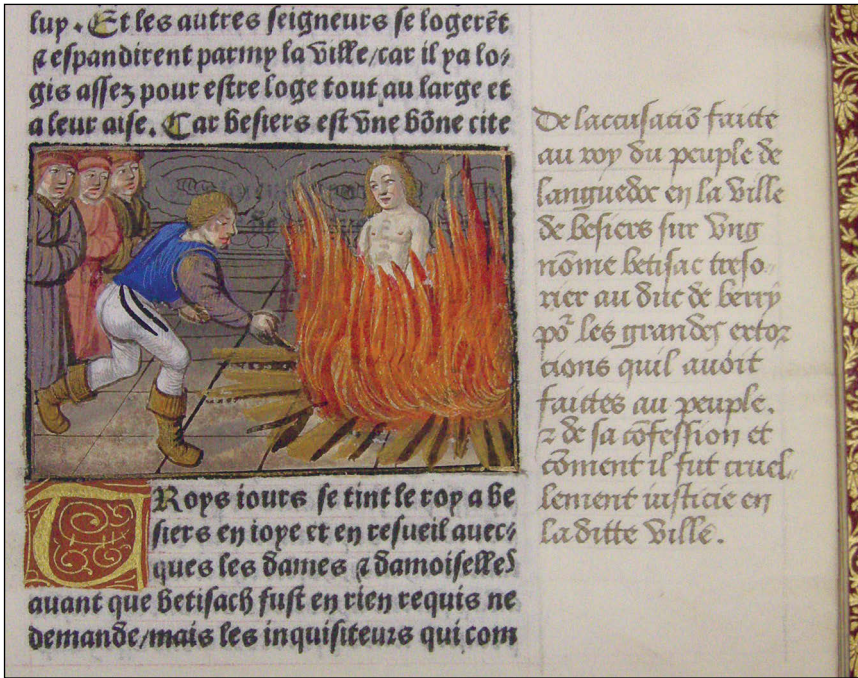 lup. Et les autres seigneurs se logerēt
⁊ espandirent parmy la ville/car il ya lo⸗
gis assez pour estre loge tout au large et
a leur aise. Car besiers est vne bōne cite
TRoys iours se tint le roy a be
siers en ioye et en resueil auec⸗
ques les dames ⁊ damoiselles
auant que betisach fust en rien requis ne
demande/mais les inquisiteurs qui com
De laccusaciō faicte
au roy du peuple de
languedoc en la ville
de besiers sur vng
nōme betisac treso
rier au duc de berry
po᷑ les grandes extor
cions quil auoit
faittes au peuple.
⁊ de sa cōfession et
cōment il fut cruel⸗
lement iusticie en
la ditte ville.